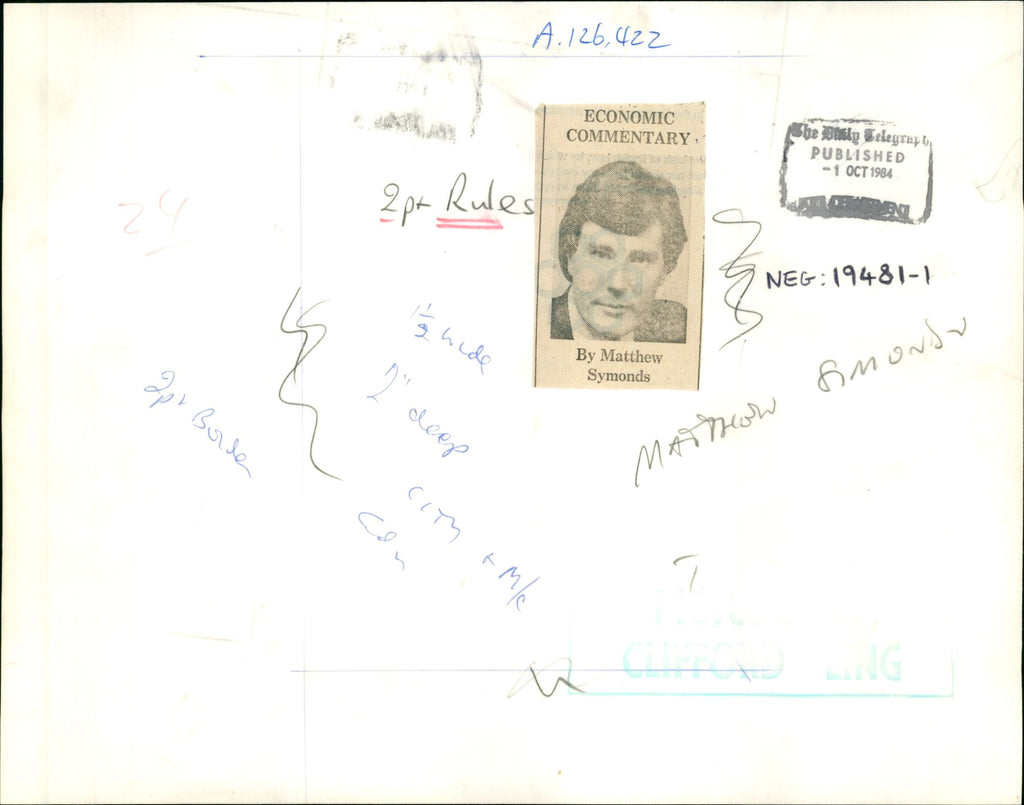 A.126,422
ECONOMIC
COMMENTARY
The Daily Telegraph
PUBLISHED
-1 OCT 1984
ART DEPARTMENT
2pt Rules
24
NEG: 19481-1
1½ wide
2" deep
By Matthew
Symonds
MATTHEW SIMONDS
2pt Border
CITY
Ldn
+ M/c
CLIFFORD LING